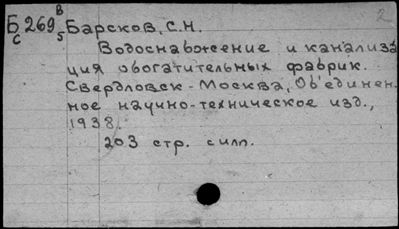 В 2
Б 269 Барсков, С.Н.
С 5
Водоснабжение и канализа
ция обогатительных фабрик.
Свердловск - Москва, Об'единен-
ное научно-техническое изд.,
1938.
203 стр. с илл.